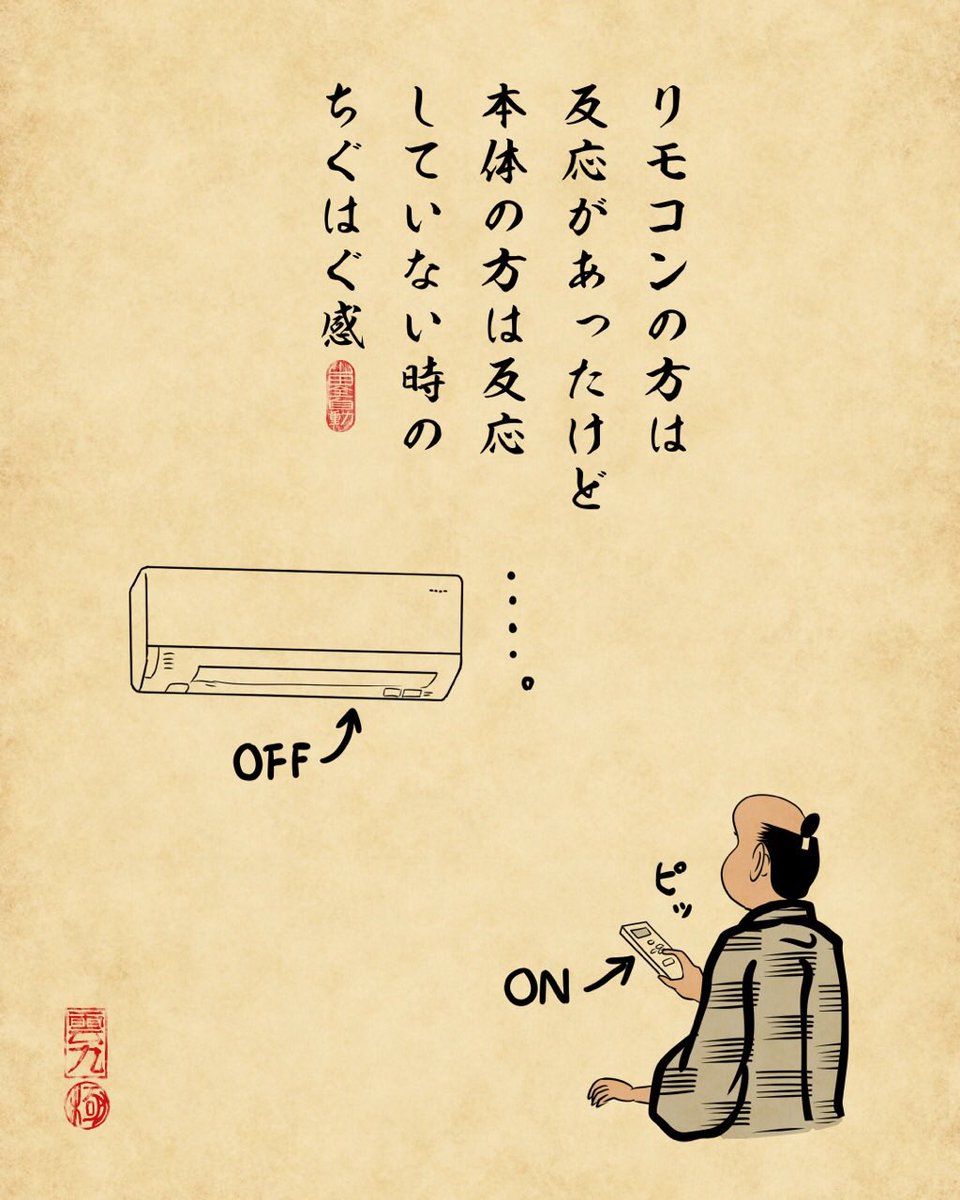 リモコンの方は
反応があったけど
本体の方は反応
していない時の
ちぐはぐ感
・・・・。
OFF
ピッ
ON